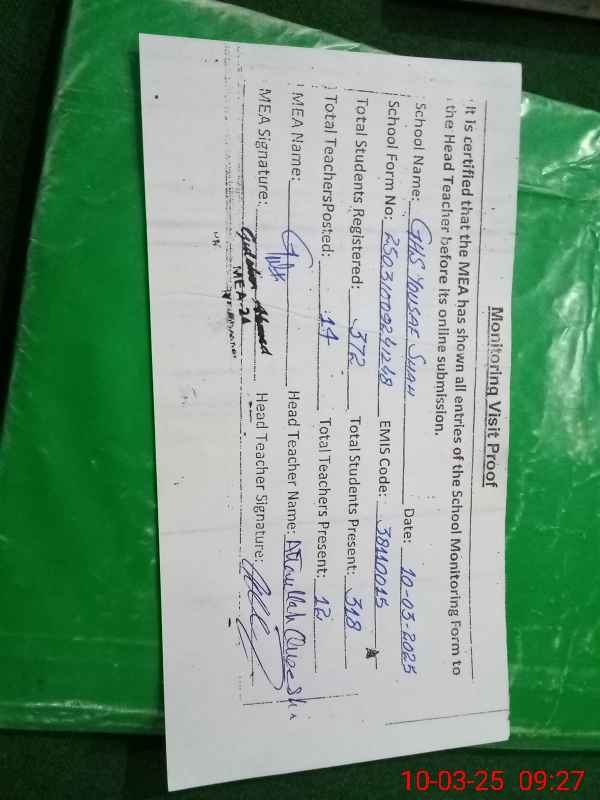 Monitoring Visit Proof
It is certified that the MEA has shown all entries of the School Monitoring Form to
the Head Teacher before its online submission.
School Name: GHS Yousae Shah Date: 10-03-2025
School Form No: EMIS Code: 38110015
Total Students Registered: 372 Total Students Present: 318
Total Teachers Posted: 14 Total Teachers Present: 12
MEA Name: Head Teacher Name: Attaullah Qureshi
MEA Signature: Head Teacher Signature:
Ahmed
MEA-24
10-03-25 09:27